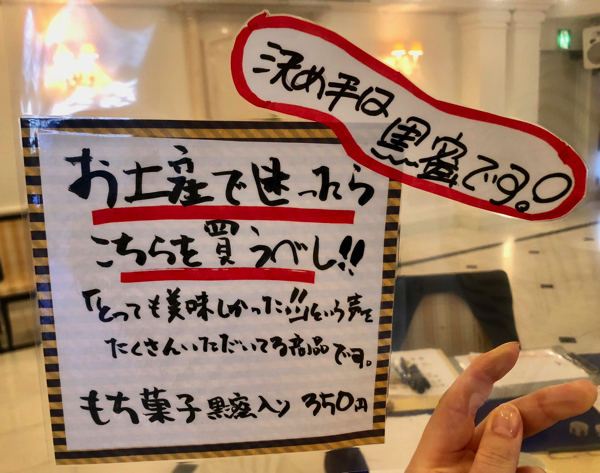 決め手は
黒蜜です。
お土産で迷ったら
こちらを買うべし!!
「とっても美味しかった!!」という声を
たくさんいただいてる商品です。
もち菓子 黒蜜入り 350円